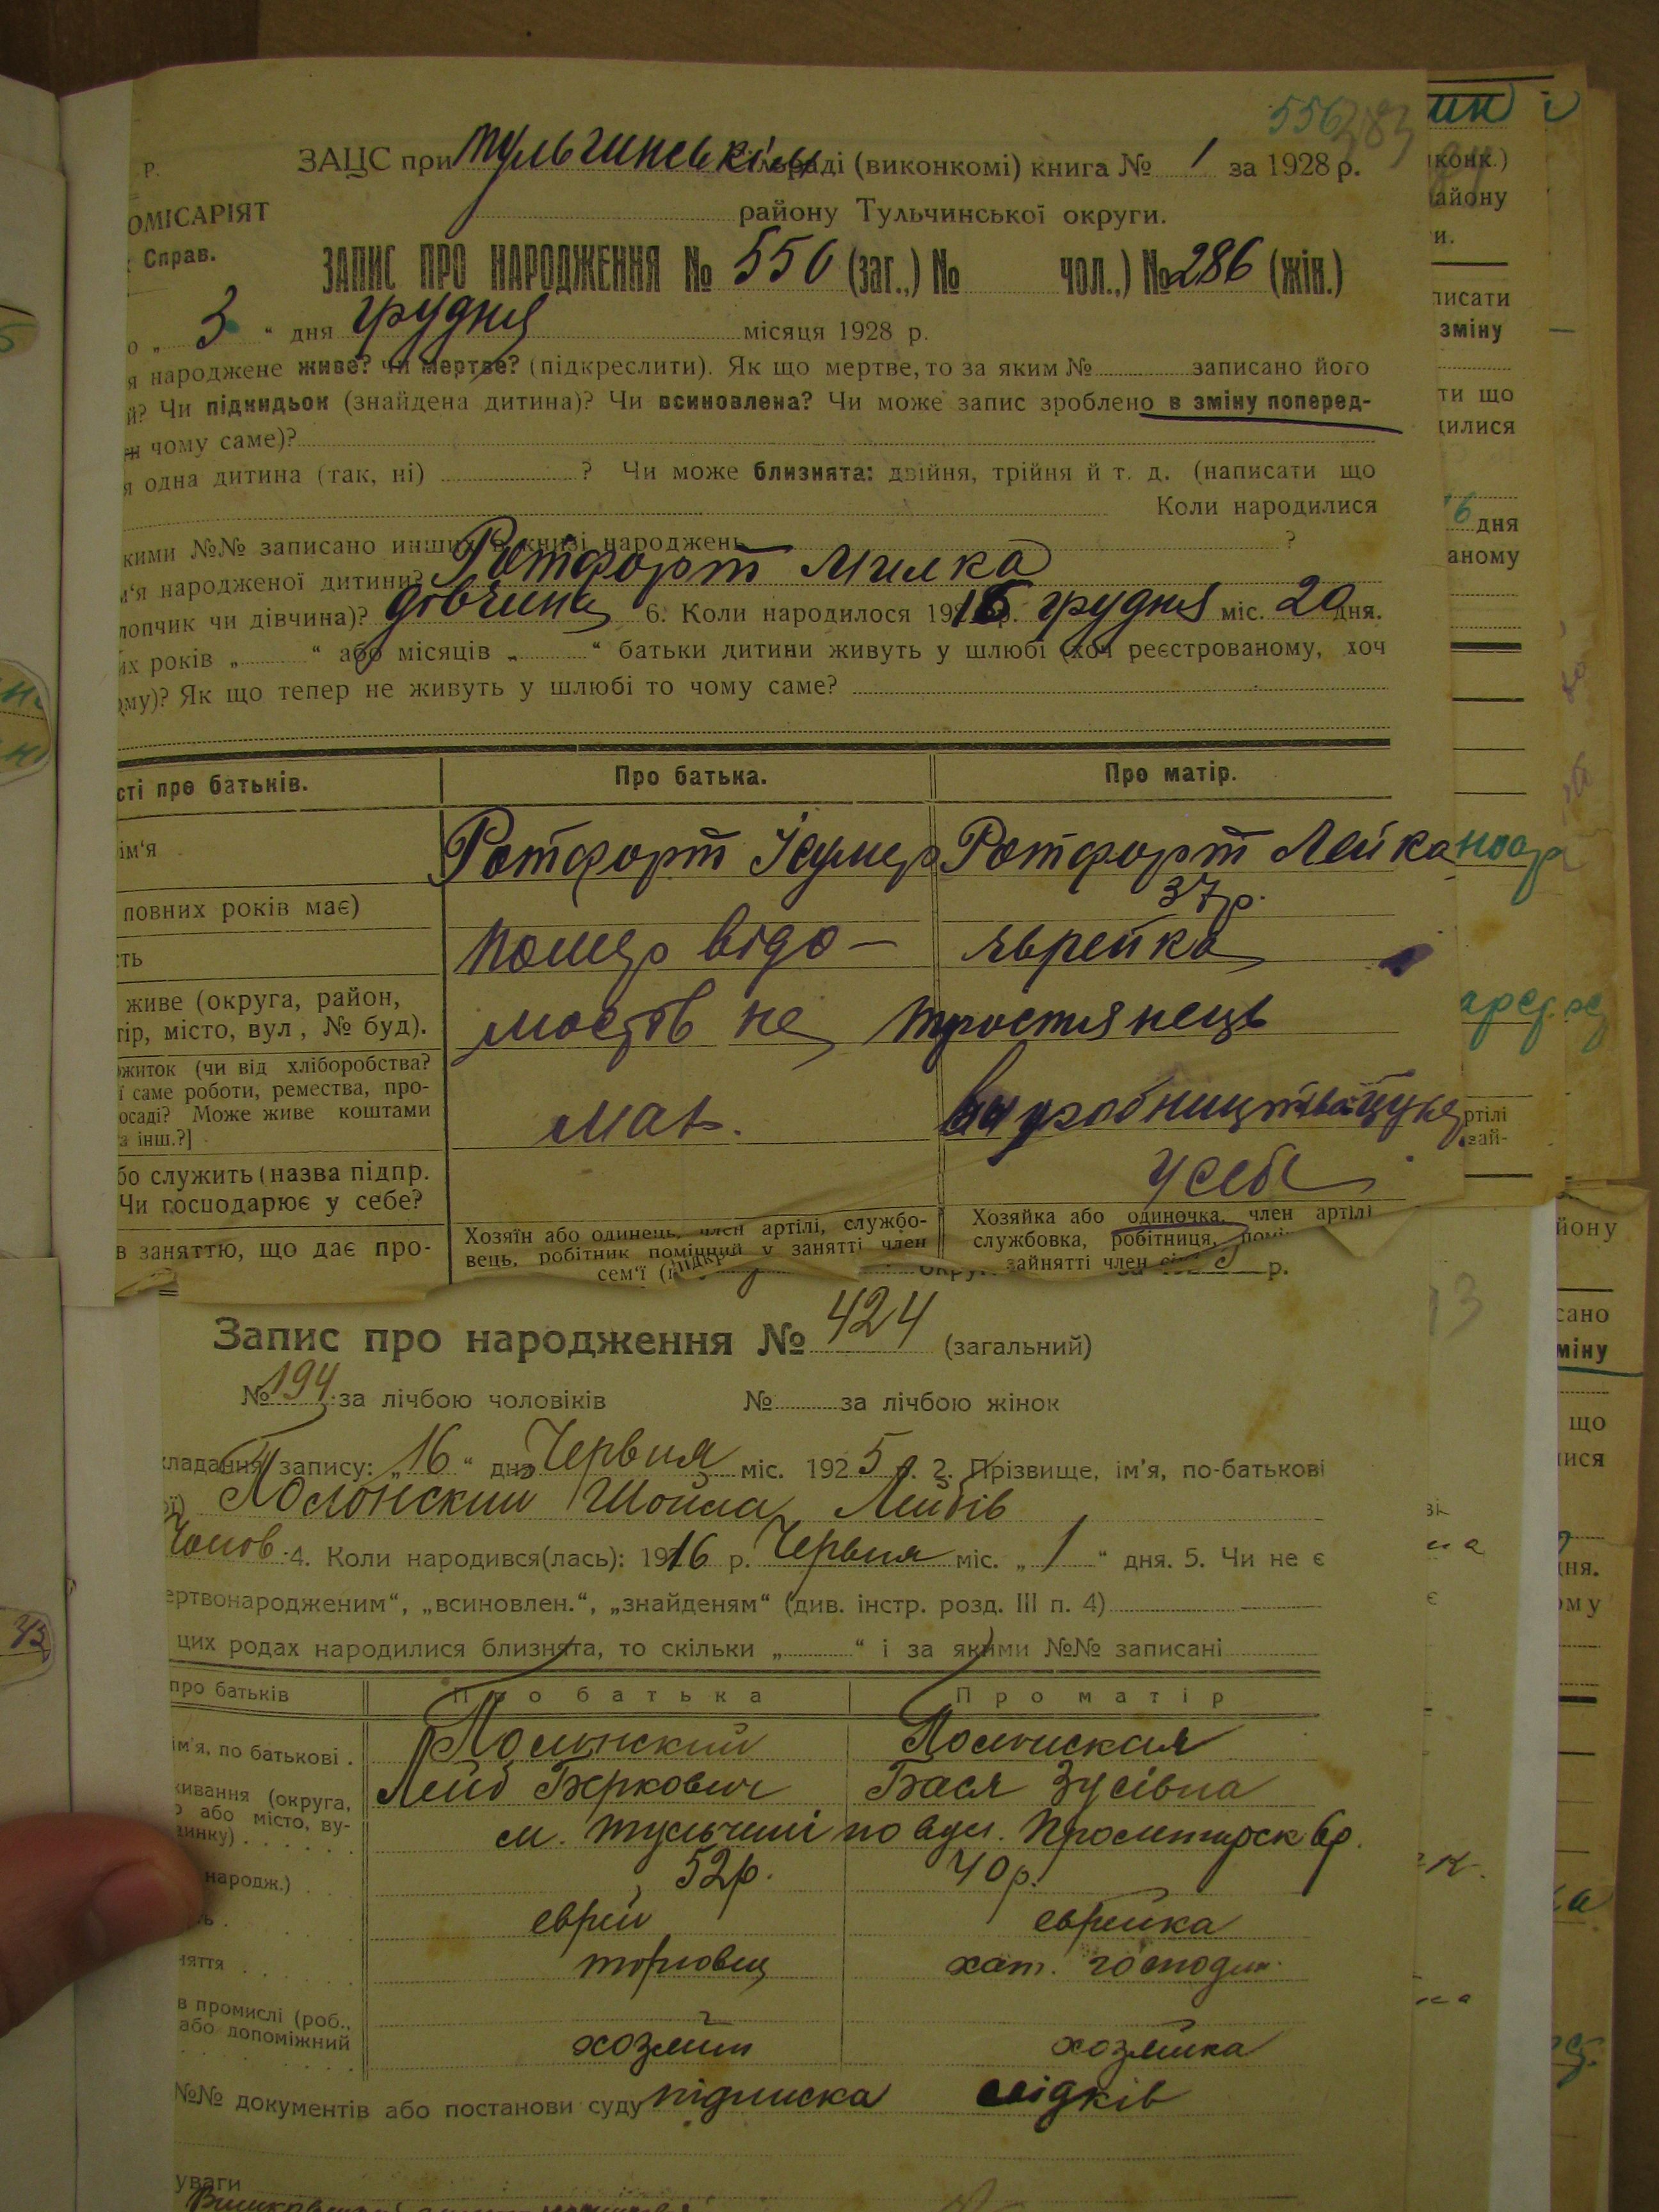 556
283
р. ЗАЦС при Тульчинській міськраді (виконкомі) книга № 1 за 1928 р.
ОМІСАРІЯТ
району Тульчинської округи.
Справ.
ЗАПИС ПРО НАРОДЖЕННЯ № 550 (заг.,) № чол.,) № 286 (жін.)
о „ 3 “ дня грудня місяця 1928 р.
я народжене живе? чи мертве? (підкреслити). Як що мертве, то за яким № записано його
й? Чи підкидьок (знайдена дитина)? Чи всиновлена? Чи може запис зроблено в зміну поперед-
н чому саме)?
я одна дитина (так, ні) ? Чи може близнята: двійня, трійня й т. д. (написати що
Коли народилися
кими №№ записано инших в книзі народжень ?
м‘я народженої дитини? Ротфорт Милка
лопчик чи дівчина)? дівчина 6. Коли народилося 1916 р. грудня міс. 20 дня.
их років „ “ або місяців „ “ батьки дитини живуть у шлюбі (хоч реєстрованому, хоч
ому)? Як що тепер не живуть у шлюбі то чому саме?
сті про батьків. Про батька. Про матір.
ім‘я Ротфорт Ротфорт Лейка
повних років має) 37 р.
ть помер відо- яврейка
живе (округа, район,
тір, місто, вул, № буд). мостів не тростянець
ожиток (чи від хліборобства?
ї саме роботи, ремества, про-
осаді? Може живе коштами
а інш.?] має.
бо служить (назва підпр.
Чи господарює у себе? у себе
в заняттю, що дає про- Хозяїн або одинець, член артілі, службо-
вець, робітник помічний у занятті член
сем‘ї (підкр
Хозяйка або одиночка, член артілі
службовка, робітниця, помі
зайнятті член сі
р.
Запис про народження № 424 (загальний)
№ 194 за лічбою чоловіків № за лічбою жінок
кладання запису: „ 16 “ дня Червня міс. 1925 р. 2. Прізвище, ім’я, по-батькові
ої) Полонский Шойла Лейбів
Чолов. 4. Коли народився(лась): 1916 р. Червня міс. „ 1 “ дня. 5. Чи не є
ертвонародженим“, „всиновлен.“, „знайденям“ (див. інстр. розд. III п. 4)
цих родах народилися близнята, то скільки „ “ і за якими №№ записані
про батьків Про батька Про матір
ім’я, по батькові . Полонский Полонская
Лейб Беркович Бася Зусівна
живання (округа,
о або місто, ву-
динку) . . . . . м. Тульчині по вул. Пролетарск 6р.
народж.) . . 52р. 40р.
ь . еврей еврейка
няття . . . . . торговец хат. господин.
в промислі (роб.,
або допоміжний хозяїн хозяйка
№№ документів або постанови суду підписка свідків
уваги